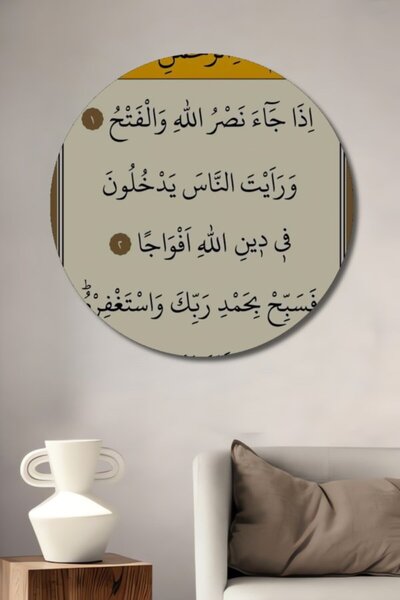 اِذَا جَٓاءَ نَصْرُ اللّٰهِ وَالْفَتْحُ ١
وَرَاَيْتَ النَّاسَ يَدْخُلُونَ
ف۪ي د۪ينِ اللّٰهِ اَفْوَاجًا ٢
فَسَبِّحْ بِحَمْدِ رَبِّكَ وَاسْتَغْفِرْهُۜ